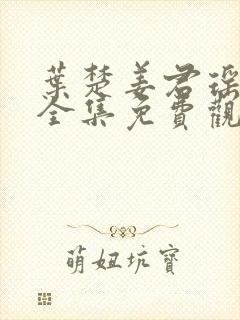 葉楚姜君瑶
全集免費觀
萌妞坑寶